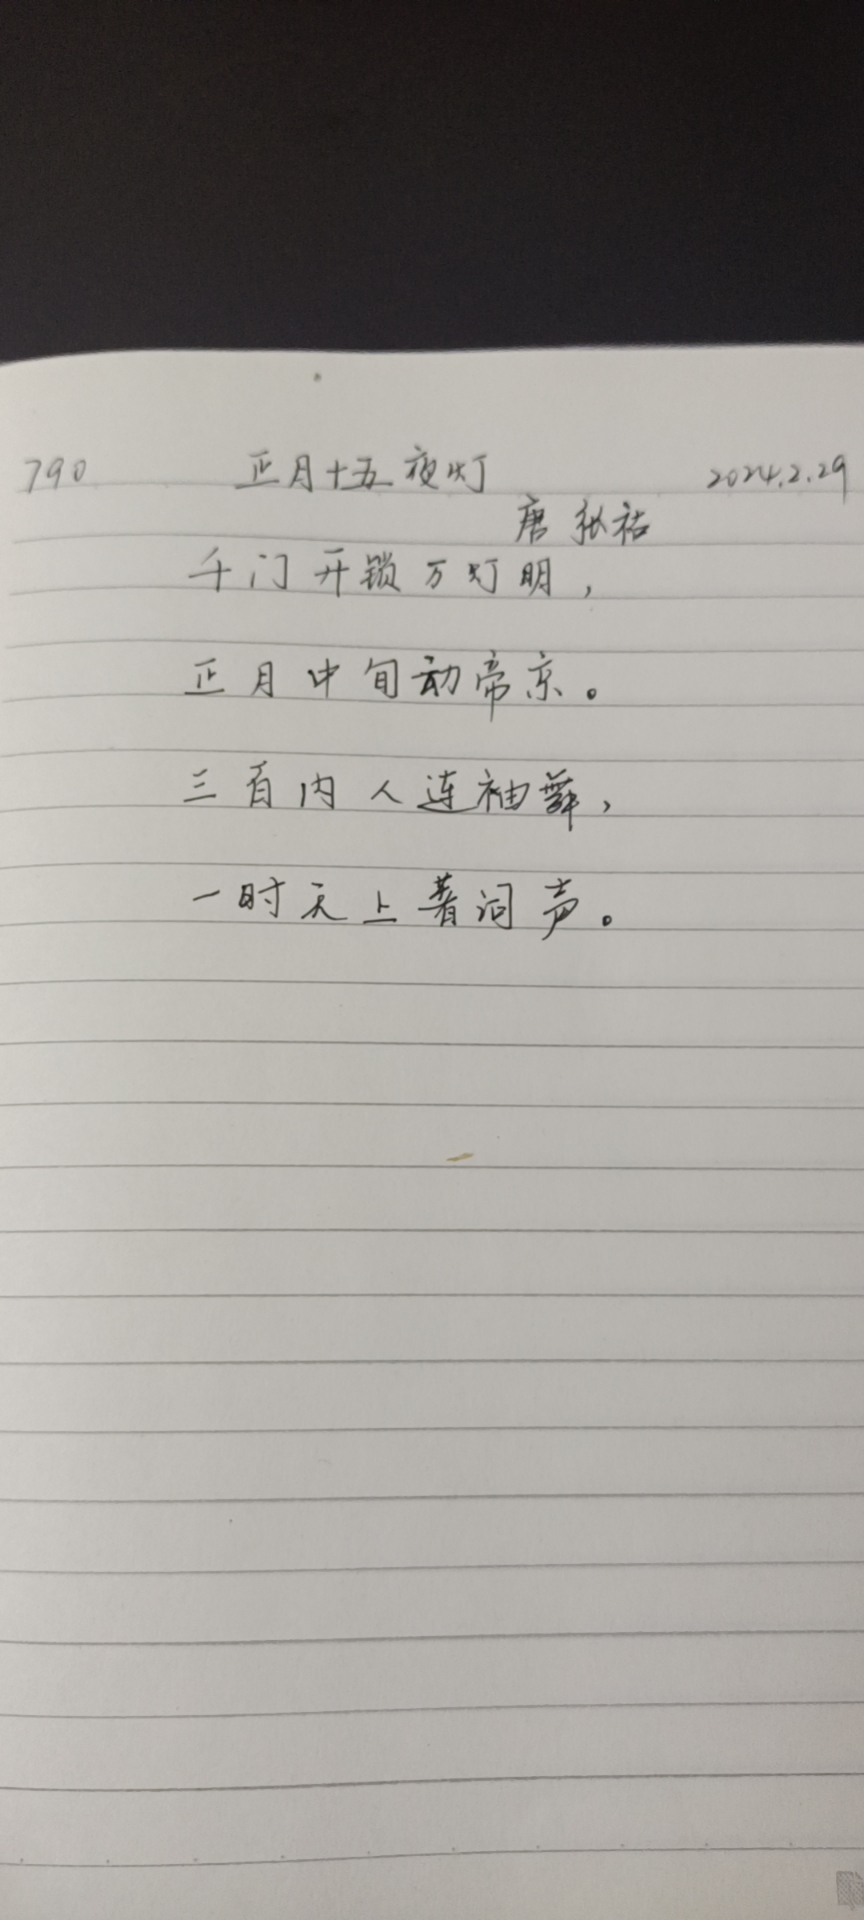 790 正月十五夜灯 2024.2.29
唐 张祜
千门开锁万灯明，
正月中旬动帝京。
三百内人连袖舞，
一时天上著词声。